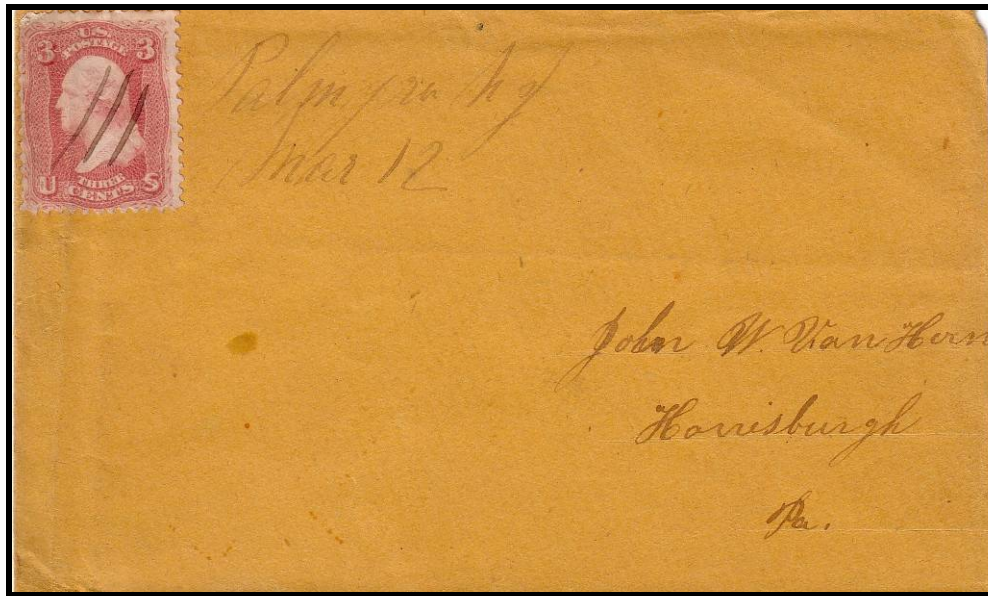 3 U.S. 3
POSTAGE
THREE
U CENTS S
Palmyra
Mar 12
John W. Van Horn
Harrisburgh
Pa.